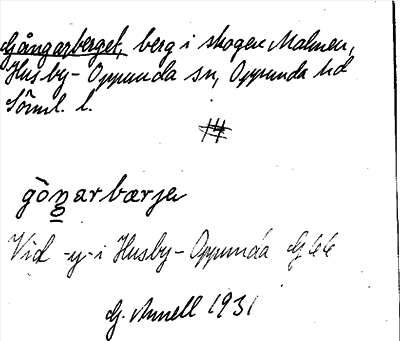 Gångarberget, berg i skogen Malmen,
Husby-Oppunda sn, Oppunda hd
Söml. l.
gòn̥arbærjə
Vid -y- i Husby-Oppunda Gj 66
G. Annell 1931